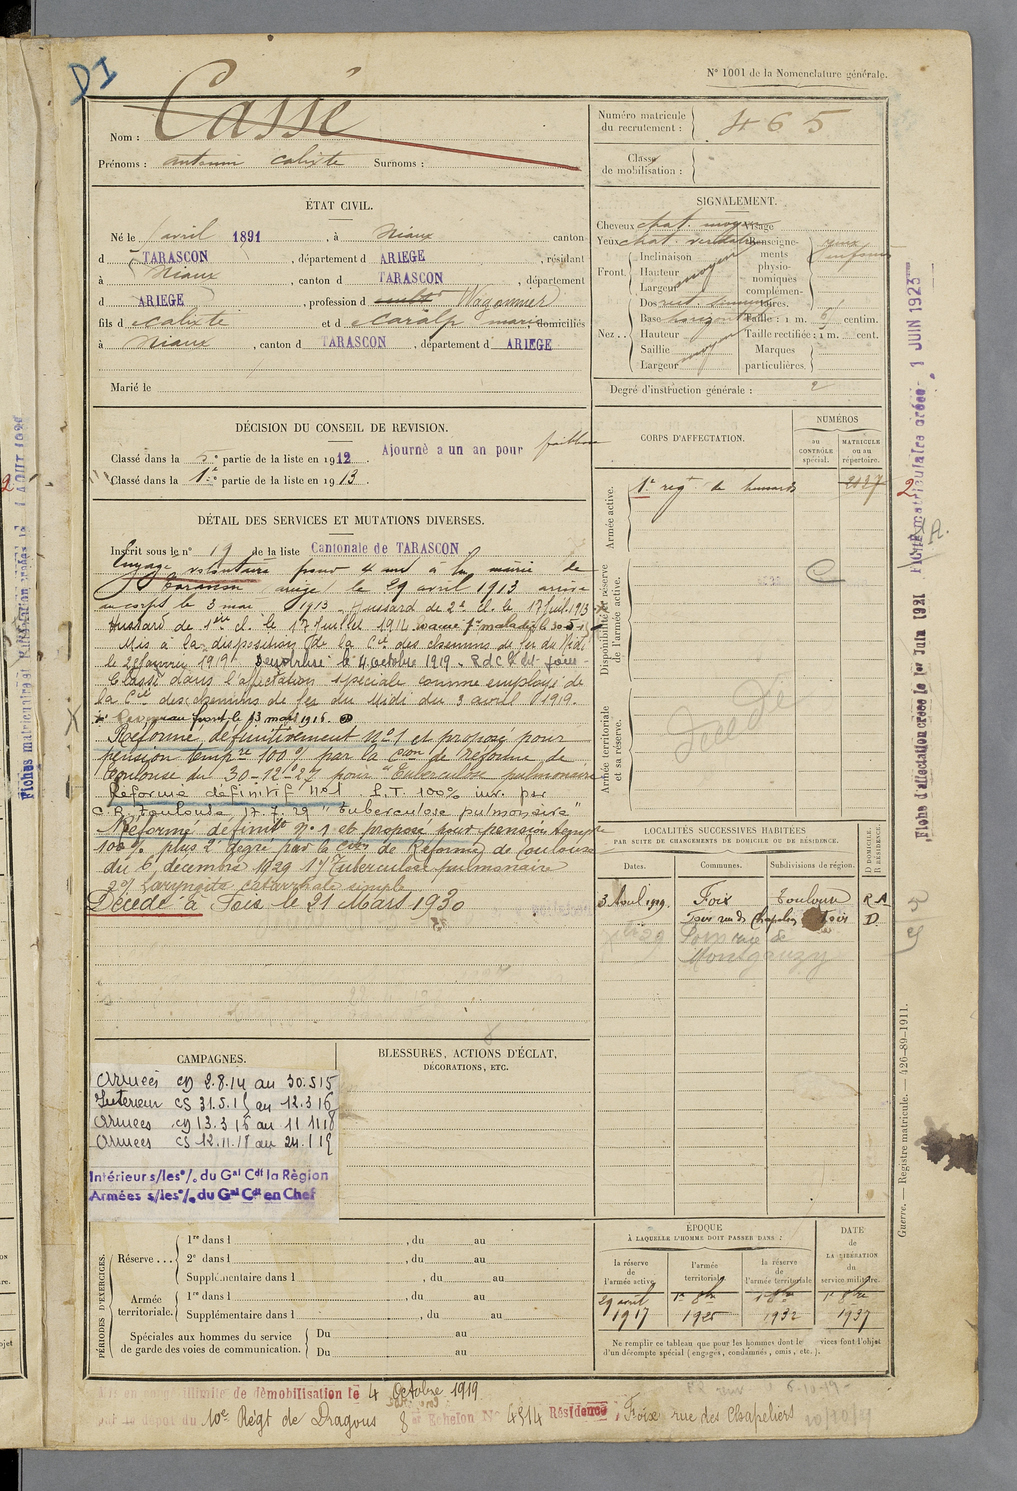 D I
N° 1001 de la Nomenclature générale.
Nom : Cassé
Prénoms : antonin calixte Surnoms :
Numéro matricule du recrutement : 465
Classe de mobilisation :
ÉTAT CIVIL.
Né le avril 1891, à Niaux canton
d TARASCON, département d ARIEGE, résidant
à Niaux, canton d TARASCON, département
d ARIEGE, profession d Wagonnier
fils d Calixte et d Caralp marie domiciliés
à Niaux, canton d TARASCON, département d ARIEGE
Marié le
SIGNALEMENT.
Cheveux chat. moyen Visage
Yeux chat. Renseignements physionomiques complémentaires.
Front. Inclinaison
Hauteur moyen
Largeur
Nez.. Dos rect.
Base horizont
Hauteur moyen
Saillie
Largeur
Taille : 1 m. 6 centim.
Taille rectifiée : 1 m. cent.
Marques particulières.
Degré d'instruction générale : 2
DÉCISION DU CONSEIL DE REVISION.
Classé dans la 5e partie de la liste en 1912. Ajourné a un an pour faiblesse
Classé dans la 1re partie de la liste en 1913.
CORPS D'AFFECTATION.
NUMÉROS
au CONTRÔLE spécial.
MATRICULE ou au répertoire.
Armée active.
1er regt de hussards 2127
Disponibilité et réserve de l'armée active.
Armée territoriale et sa réserve.
Décédé
DÉTAIL DES SERVICES ET MUTATIONS DIVERSES.
Inscrit sous le n° 19 de la liste Cantonale de TARASCON
Engagé volontaire pour 4 ans à la mairie de
Tarascon ariège le 29 avril 1913 arrivé
au corps le 3 mai 1913 Hussard de 2e cl. le 17 Juil. 1913
Hussard de 1ère cl. le 17 Juillet 1914 évacué pr maladie le 30-5-15
Mis à la disposition de la Cie des chemins de fer du Midi
le 25 Janvier 1919 Démobilisé le 4 octobre 1919. RdC Foix
Classé dans l'affectation spéciale comme employé de
la Cie des chemins de fer du Midi du 3 avril 1919.
Revenu au front le 13 mars 1916.
Réformé définitivement N°1 et proposé pour
pension tempre 100% par la Con de Réforme de
Toulouse du 30-12-27 pour Tuberculose pulmonaire
Réformé définitif N°1 P.T. 100% inv. par
C.R. Toulouse 17.7.29 "tuberculose pulmonaire"
Réformé définitf N°1 et proposé pour pension temp
100% plus 2 degré par la Con de Réforme de Toulouse
du 6 decembre 1929 1°/ Tuberculose pulmonaire
2°/ Laryngite catarrhale simple
Décédé à Foix le 21 Mars 1930
LOCALITÉS SUCCESSIVES HABITÉES
PAR SUITE DE CHANGEMENTS DE DOMICILE OU DE RÉSIDENCE.
D DOMICILE. R RÉSIDENCE.
Dates. Communes. Subdivisions de région.
3 Avril 1919. Foix Toulouse R A
Foix rue des Chapeliers Foix D
29 Foix rue de
Montgauzy
CAMPAGNES.
Armées CD 2.8.14 au 30.5.15
Intérieur CS 31.5.15 au 12.3.16
Armées CD 13.3.16 au 11.11.18
Armées CS 12.11.18 au 24.1.19
Intérieur s/les %. du Gal Cdt la Région
Armées s/les %. du Gal Cdt en Chef
BLESSURES, ACTIONS D'ÉCLAT,
DÉCORATIONS, ETC.
PÉRIODES D'EXERCICES.
Réserve...
1re dans l , du au
2e dans l , du au
Supplémentaire dans l , du au
Armée territoriale.
1re dans l , du au
Supplémentaire dans l , du au
Spéciales aux hommes du service de garde des voies de communication.
Du au
Du au
ÉPOQUE
À LAQUELLE L'HOMME DOIT PASSER DANS :
la réserve de l'armée active
l'armée territoriale
la réserve de l'armée territoriale
DATE de LA LIBÉRATION du service militaire.
29 avril 1917
1er 8bre 1925
1er 8bre 1932
1er 8bre 1937
Ne remplir ce tableau que pour les hommes dont les services font l'objet
d'un décompte spécial (engagés, condamnés, omis, etc.).
Mis en congé illimité de démobilisation le 4 Octobre 1919
par le dépôt du 10e Régt de Dragons 8 Echelon N° 4514 Résidence, Foix rue des Chapeliers
Guerre. — Registre matricule. — 426-89-1911.
Fiche d'affectation créée le 1er Juin 1921
Fiche matriculaire créée 1 JUIN 1923